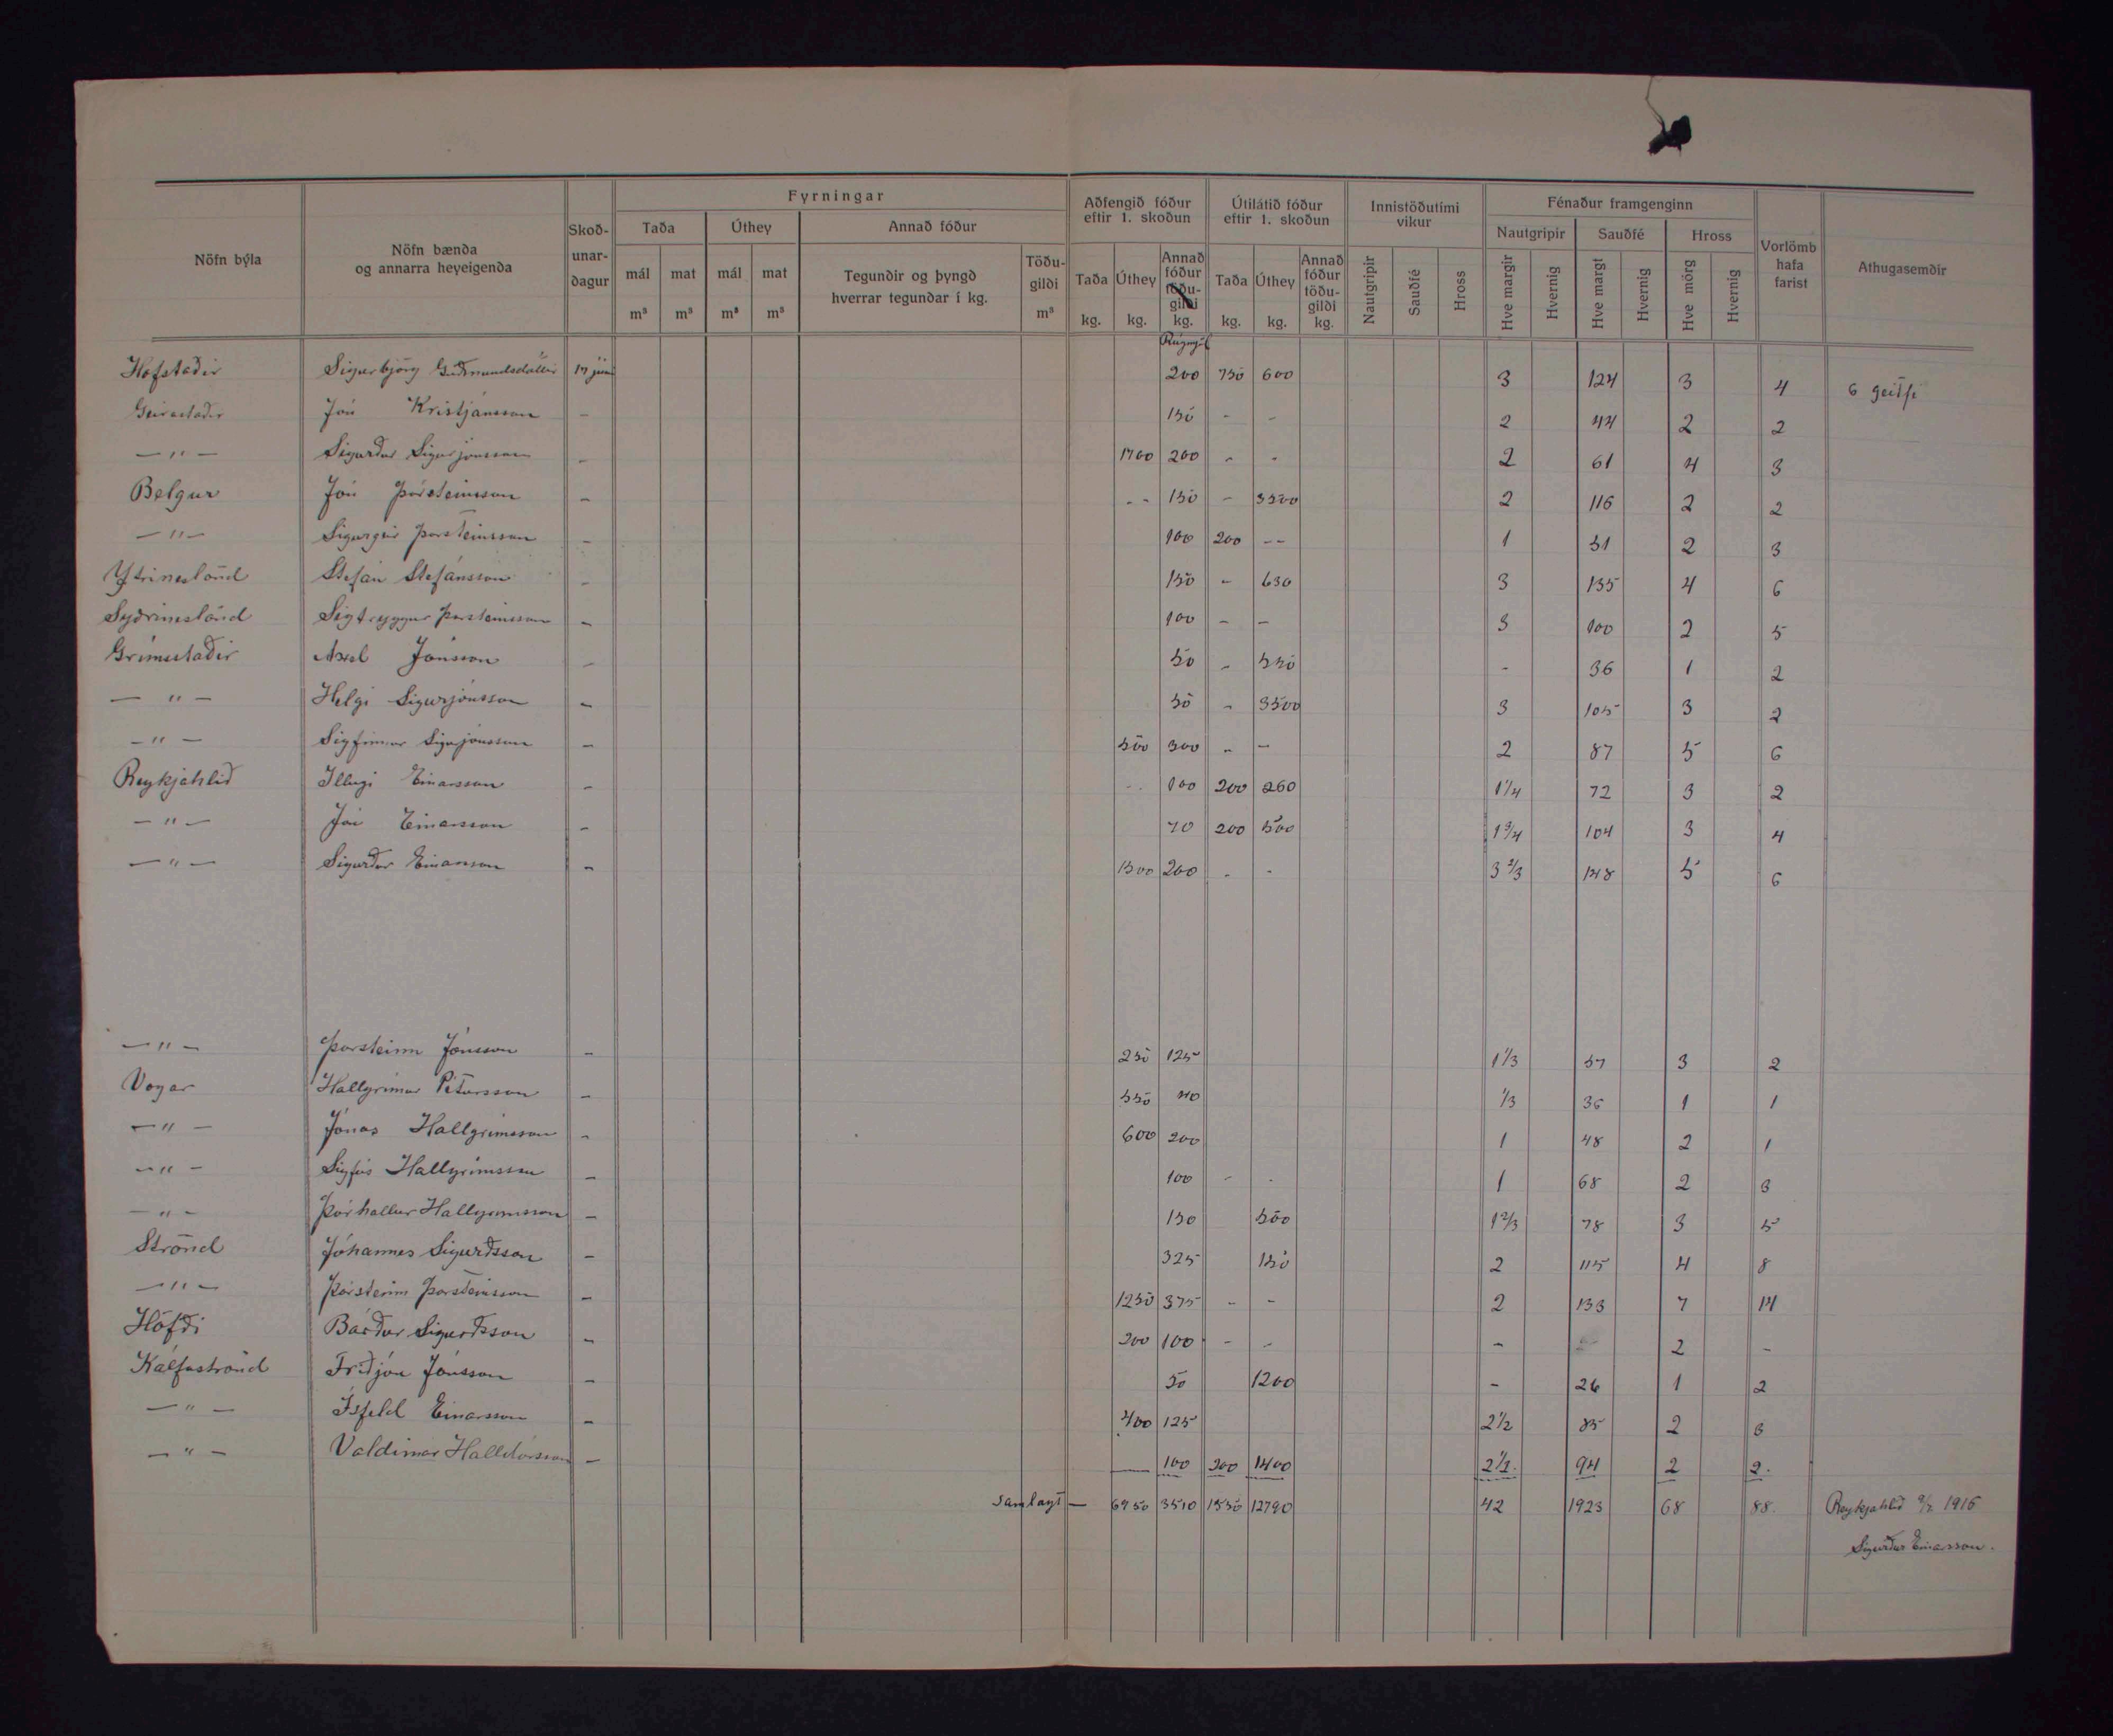 Fyrningar
Aðfengið fóður eftir 1. skoðun
Útilátið fóður eftir 1. skoðun
Innistöðutími vikur
Fénaður framgenginn
Nöfn býla
Nöfn bænda og annarra heyeigenda
Skoð-unar-dagur
Taða
Úthey
Annað fóður
Nautgripir
Sauðfé
Hross
Vorlömb hafa farist
Athugasemdir
mál m³ mat m³ mál m³ mat m³
Tegundir og þyngd hverrar tegundar í kg.
Töðu-gildi m³
Taða kg. Úthey kg. Annað fóður töðu-gildi kg.
Taða kg. Úthey kg. Annað fóður töðu-gildi kg.
Nautgripir Sauðfé Hross
Hve margir Hvernig Hve margt Hvernig Hve mörg Hvernig
Hofstaðir Sigurbjörg Guðmundsdóttir 200 750 600 3 124 3 4
Geirastaðir Jón Kristjánsson - 150 - - 2 44 2 2
— " — Sigurður Sigurjónsson - 1700 200 - - 2 61 4 3
Belgur Jón Þorsteinsson - - - 150 - 3500 2 116 2 2
— " — Sigurgeir Þorsteinsson - 100 200 -- 1 51 2 3
Ytrineslönd Stefán Stefánsson - 150 - 630 3 135 4 6
Syðrineslönd Sigtryggur Þorsteinsson - 100 - - 3 100 2 5
Grímsstaðir Axel Jónsson - 50 - 550 - 36 1 2
— " — Helgi Sigurjónsson - 50 - 3500 3 105 3 2
— " — Sigfinnur Sigurjónsson - 500 300 - - 2 87 5 6
Reykjahlið Illugi Einarsson - - - 100 200 260 1 1/4 72 3 2
— " — Jón Einarsson - 70 200 500 1 3/4 104 3 4
— " — Sigurður Einarsson - 1500 200 - - 3 2/3 148 5 6
— " — Þorsteinn Jónsson - 250 125 1 1/3 57 3 2
Vogar Hallgrímur Pétursson - 550 40 1/3 36 1 1
— " — Jónas Hallgrímsson - 600 200 1 48 2 1
— " — Sigfús Hallgrímsson - 100 - - 1 68 2 3
— " — Þórhallur Hallgrímsson - 150 500 1 2/3 78 3 5
Strönd Jóhannes Sigurðsson - 325 150 2 115 4 8
— " — Þorsteinn Þorsteinsson - 1250 375 - - 2 133 7 14
Höfði Bárður Sigurðsson - 200 100 - - - - 2 -
Kálfaströnd Friðjón Jónsson - 50 1200 - 26 1 2
— " — Ísfeld Einarsson - 400 125 2 1/2 85 2 3
— " — Valdimar Halldórsson - 100 200 1400 2 1/2 94 2 2.
samlagt — 6950 3510 1550 12790 42 1923 68 88. Reykjahlið 9/7 1916
Sigurður Einarsson.